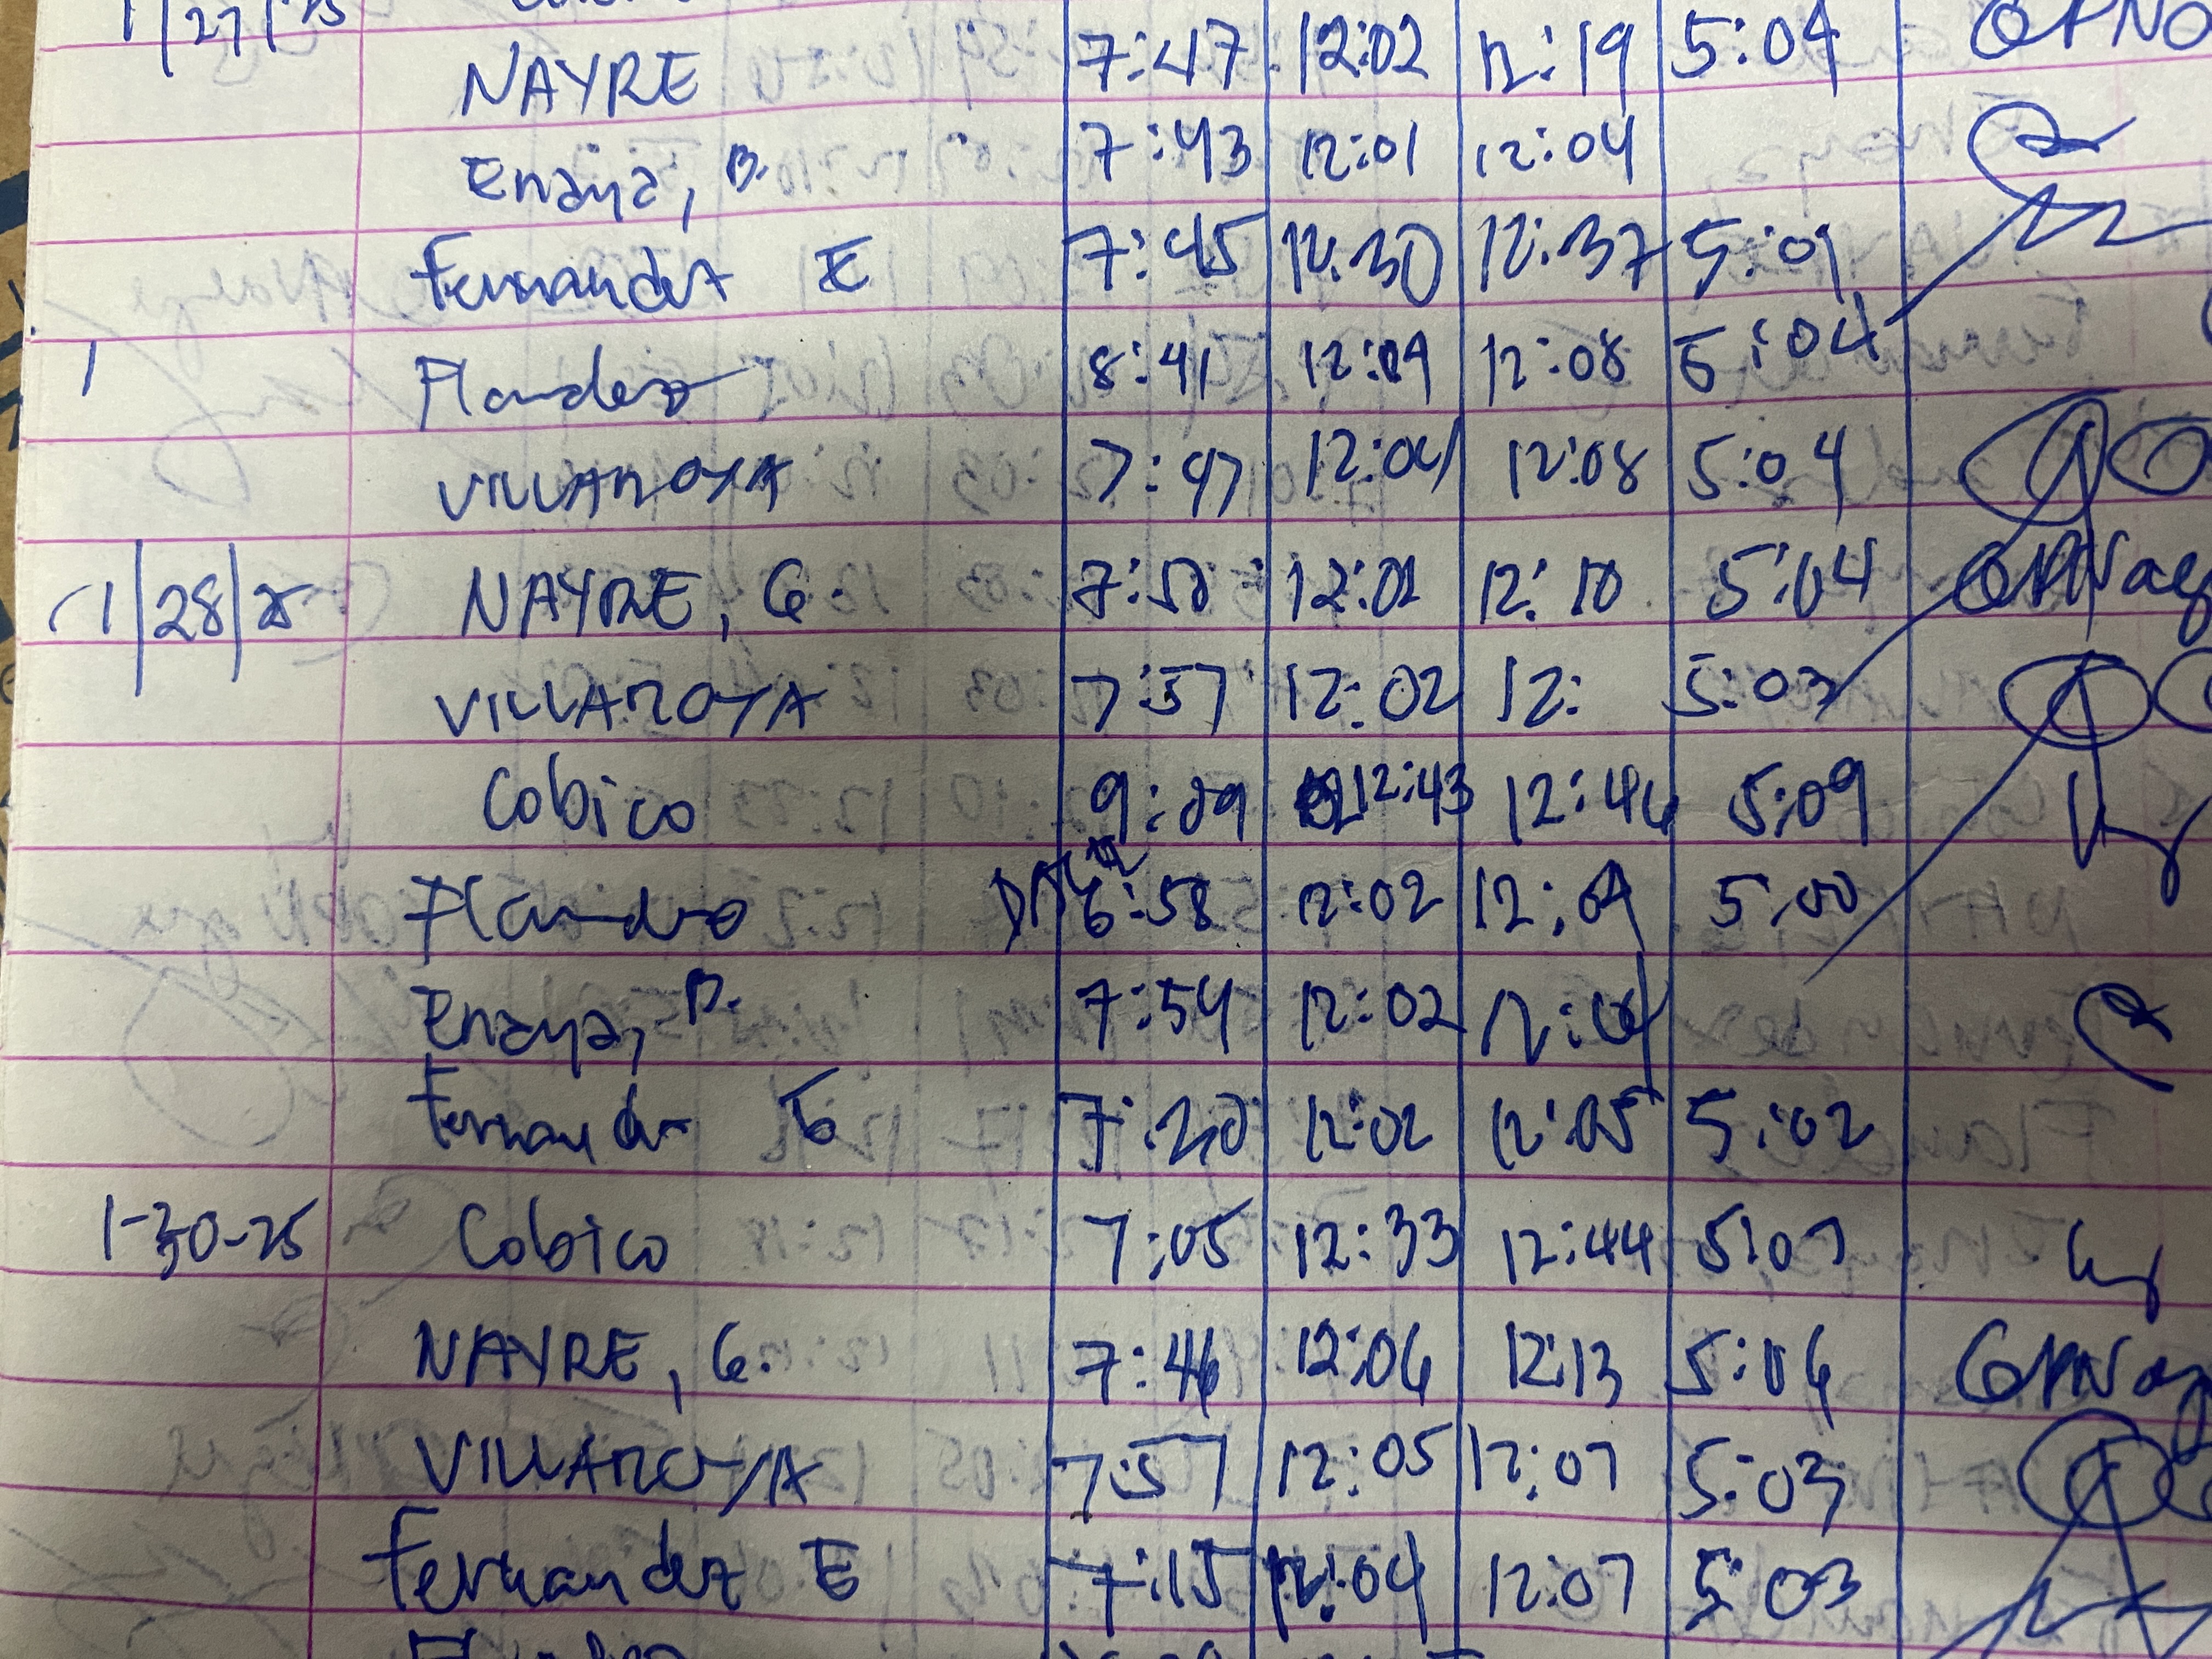 1/27/25
NAYRE 7:47 12:02 12:19 5:04
Enaya, B. 7:43 12:01 12:04
Fernandez E 7:45 12:30 12:37 5:01
Flandez 8:41 12:09 12:08 5:04
VILLAROYA 7:47 12:04 12:08 5:04
1/28/25 NAYRE, G. 7:50 12:02 12:10 5:04
VILLAROYA 7:57 12:02 12: 5:03
Cobico 9:09 12:43 12:46 5:09
6:58 12:02 12:04 5:00
Enaya, B. 7:54 12:02 12:04
Fernandez E 7:20 12:02 12:05 5:02
1-30-25 Cobico 7:05 12:33 12:44 5:07
NAYRE, G. 7:46 12:06 12:13 5:06
VILLAROYA 7:57 12:05 12:07 5:03
Fernandez E 7:15 12:04 12:07 5:03